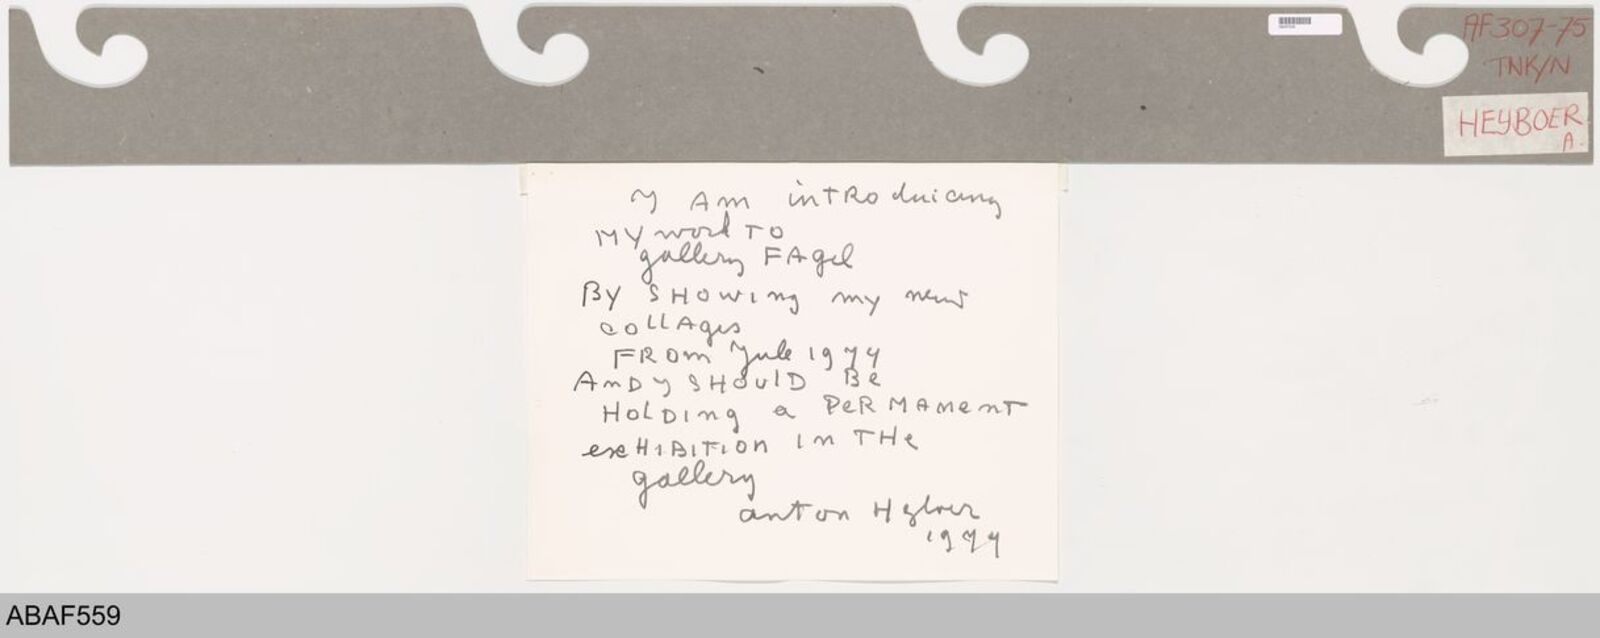 AF307-75
TNK/N
HEYBOER
A.
Y AM inTRoduicing
MY work TO
gallery FAgel
BY SHOWing my new
collAges
FROM Yule 1974
AnD y SHOulD Be
HOLDing a PeRMAnenT
exHiBiTion in THe
gallery
anton Heyboer
1974
ABAF559